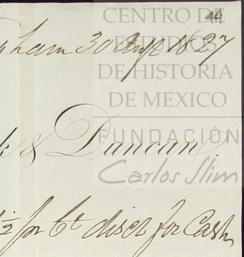 CENTRO DE
DE HISTORIA
DE MEXICO
FUNDACIÓN
Carlos Slim
ham 30 Augt 1827
& Duncan
½ for Ct discr for Cash